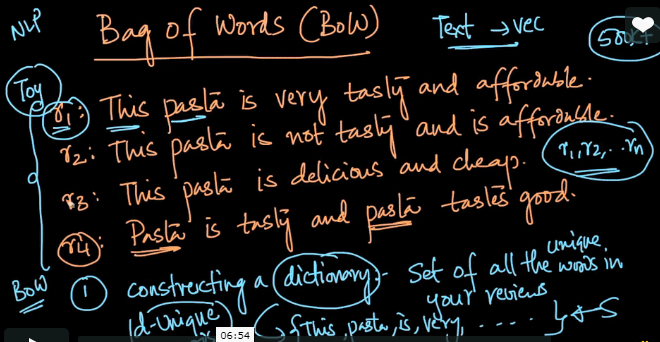 NLP
Bag of Words (BoW)
Text → vec
Toy
r1: This pasta is very tasty and affordable.
r2: This pasta is not tasty and is affordable.
r3: This pasta is delicious and cheap.
r1, r2, ... rn
r4: Pasta is tasty and pasta tastes good.
BoW
1 constructing a dictionary:- Set of all the unique words in
your reviews
d-unique
{This, pasta, is, very, .... }
06:54